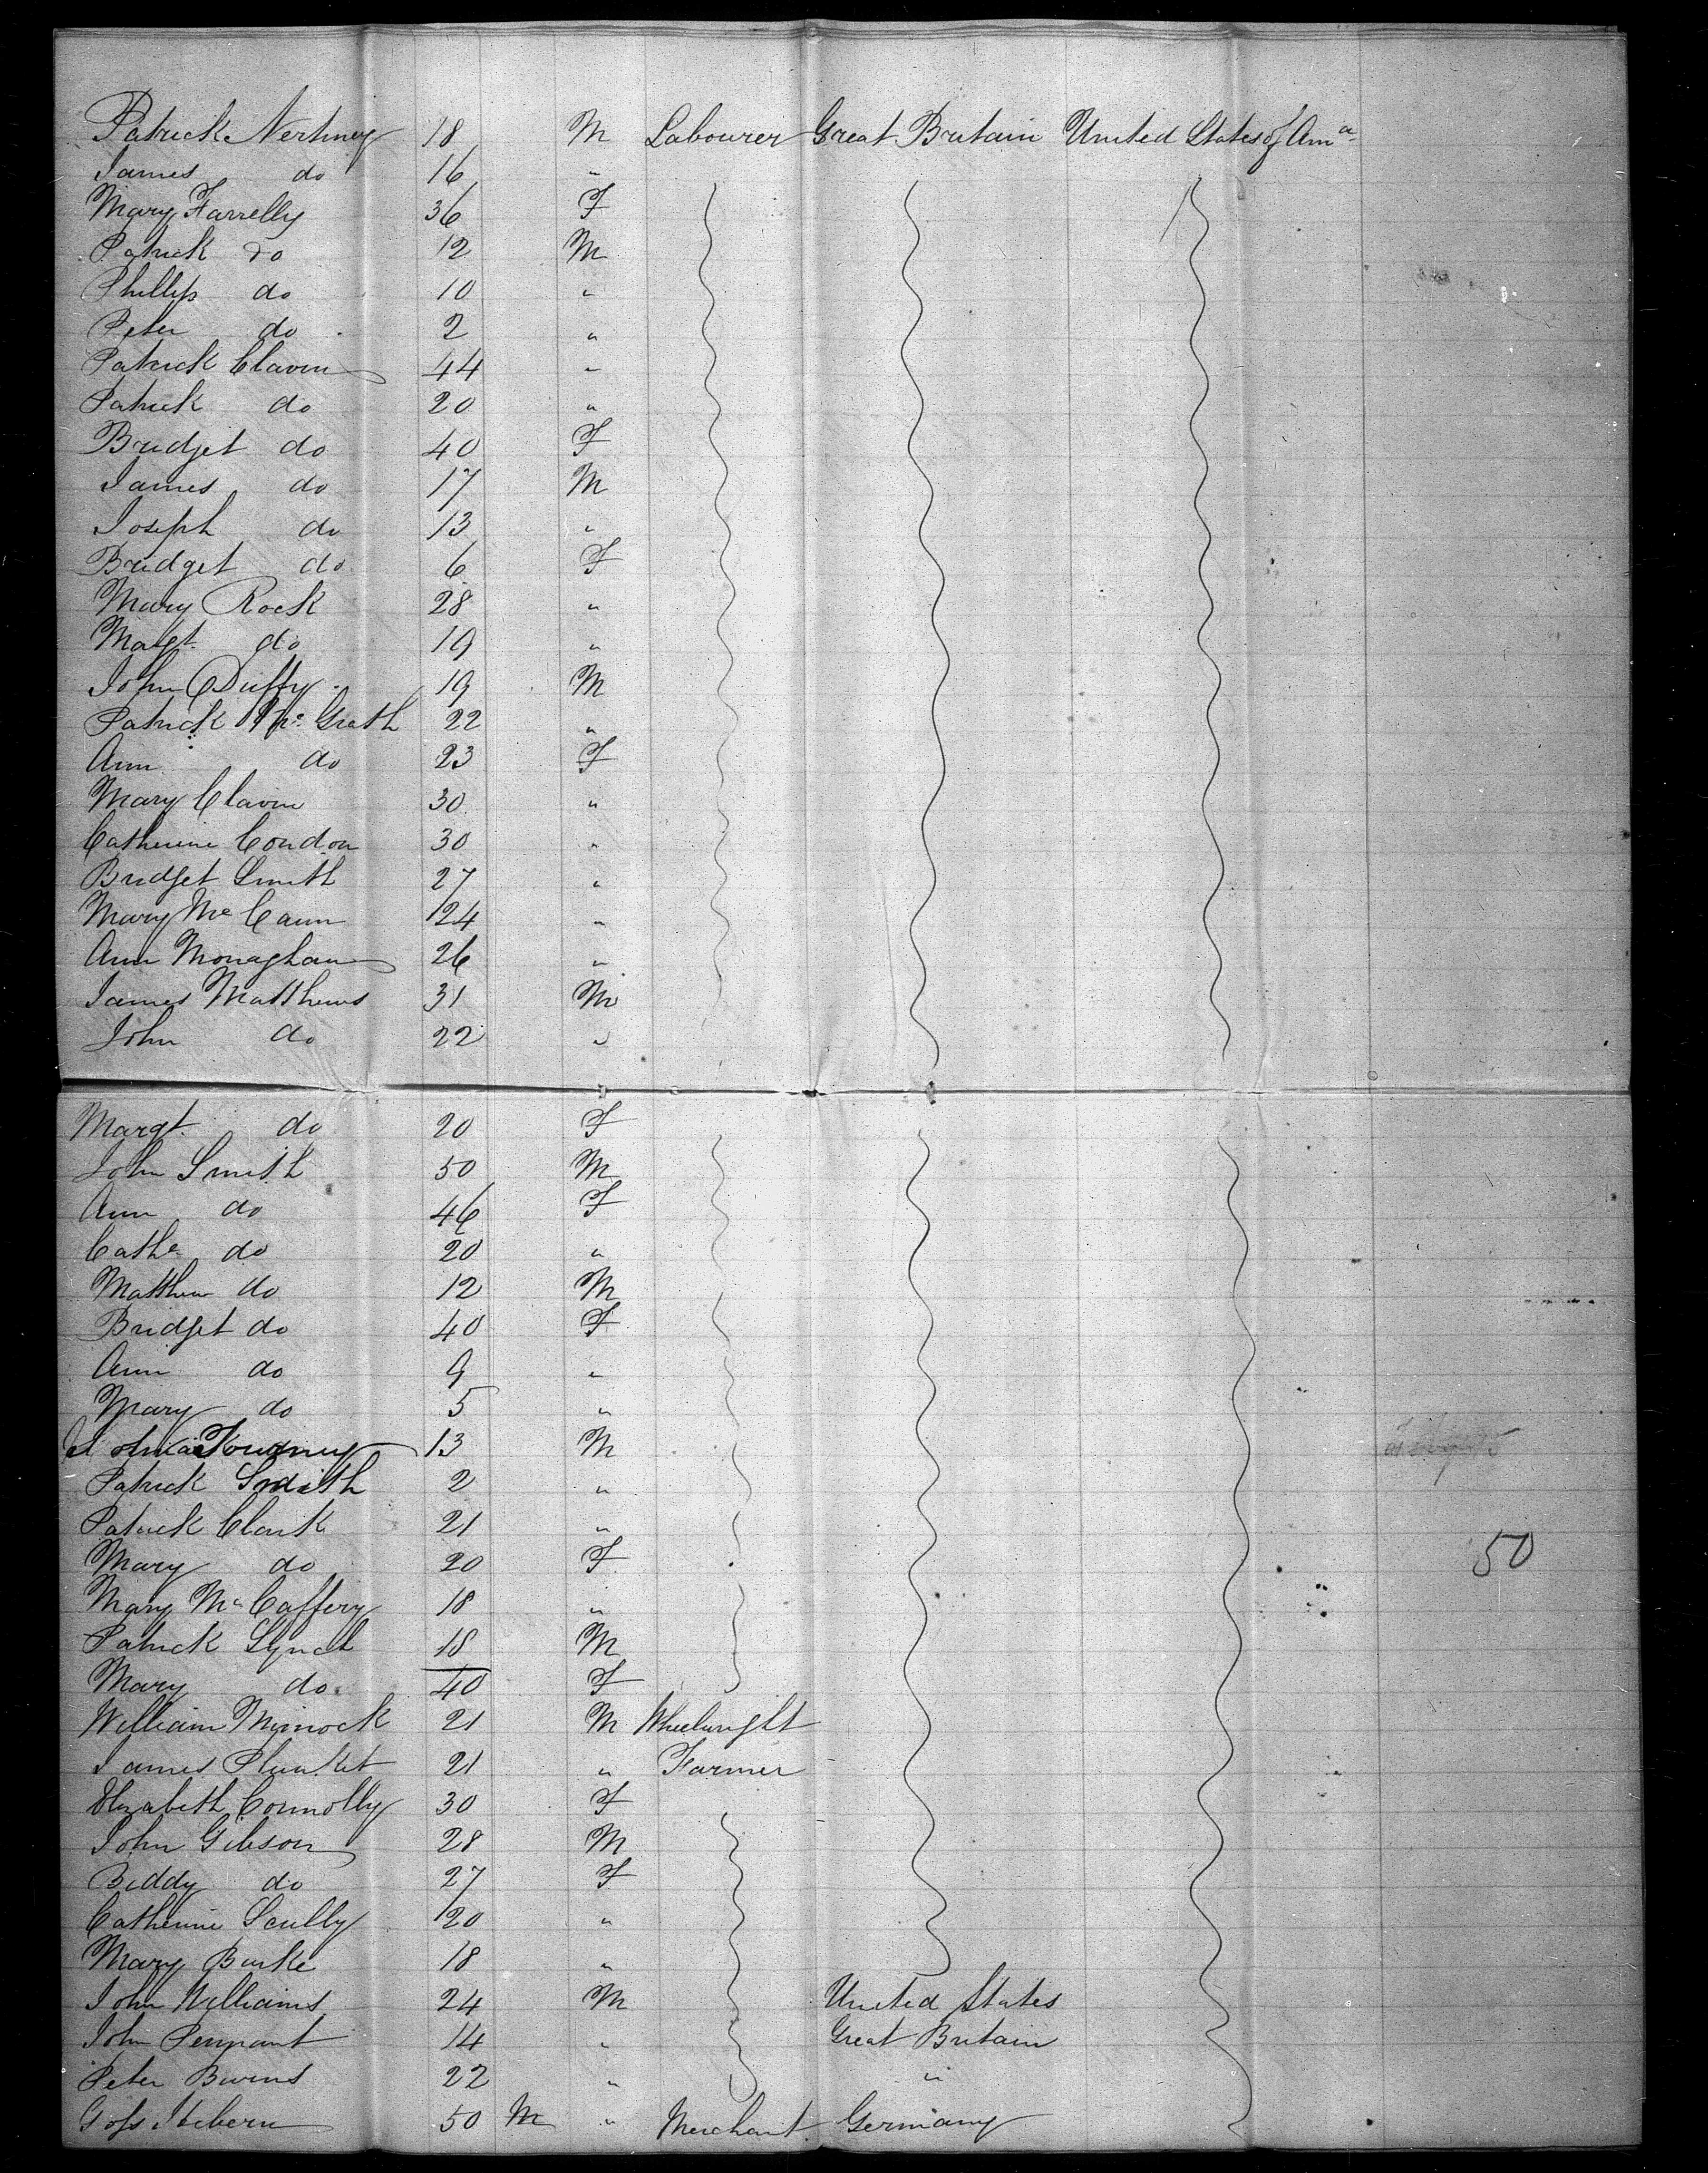 Patrick Nertney 18 M Labourer Great Britain United States of Ama
James do 16 "
Mary Farrelly 36 F
Patrick do 12 M
Phillip do 10 "
Peter do 2 "
Patrick Clavin 44 "
Patrick do 20 "
Bridget do 40 F
James do 17 M
Joseph do 13 "
Bridget do 6 F
Mary Rock 28 "
Margt do 19 "
John Duffy 19 M
Patrick Mc Grath 22 "
Ann do 23 F
Mary Clavin 30 "
Catherine Condon 30 "
Bridget Smith 27 "
Mary Mc Cann 24 "
Ann Monaghan 26 "
James Matthews 31 M
John do 22 "
Margt do 20 F
John Smith 50 M
Ann do 46 F
Cathe do 20 "
Matthew do 12 M
Bridget do 40 F
Ann do 9 "
Mary do 5 "
13 M
Patrick Smith 2 "
Patrick Clark 21 "
Mary do 20 F 50
Mary Mc Caffery 18 "
Patrick Lynch 18 M
Mary do 40 F
William 21 M Wheelwright
James Plunket 21 " Farmer
Elizabeth Connolly 30 F
John Gibson 28 M
Biddy do 27 F
Catherine Scully 20 "
Mary Burke 18 "
John Williams 24 M United States
John 14 " Great Britain
Peter Burns 22 " "
50 M " Merchant Germany